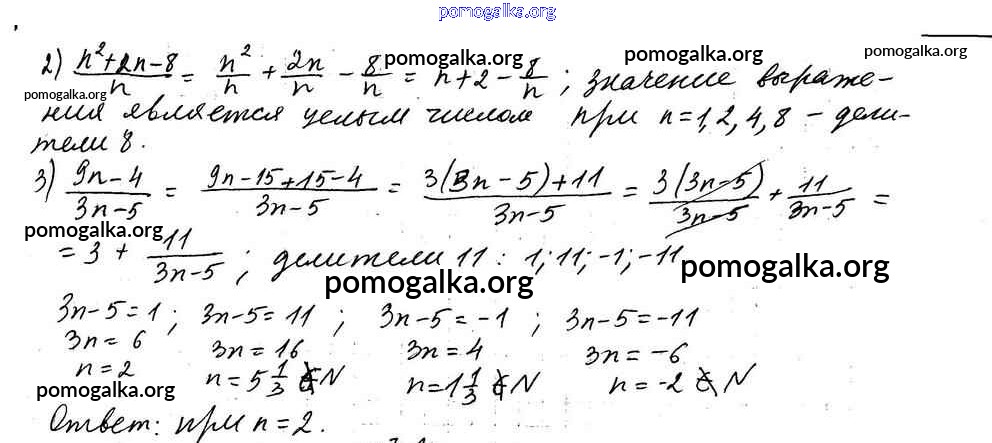 pomogalka.org
2) (n²+2n-8)/n = n²/n + 2n/n - 8/n = n+2 - 8/n ; значение выраже-
pomogalka.org pomogalka.org pomogalka.org
pomogalka.org
ния является целым числом при n=1, 2, 4, 8 – дели-
тели 8.
3) (9n-4)/(3n-5) = (9n-15+15-4)/(3n-5) = (3(3n-5)+11)/(3n-5) = 3(3n-5)/(3n-5) + 11/(3n-5) =
pomogalka.org
= 3 + 11/(3n-5) ; делители 11 : 1; 11; -1; -11
pomogalka.org pomogalka.org
3n-5=1 ; 3n-5=11 ; 3n-5=-1 ; 3n-5=-11
3n=6 3n=16 3n=4 3n=-6
n=2 n=5 1/3 ∉ N n=1 1/3 ∉ N n=-2 ∉ N
pomogalka.org pomogalka.org
Ответ: при n=2.